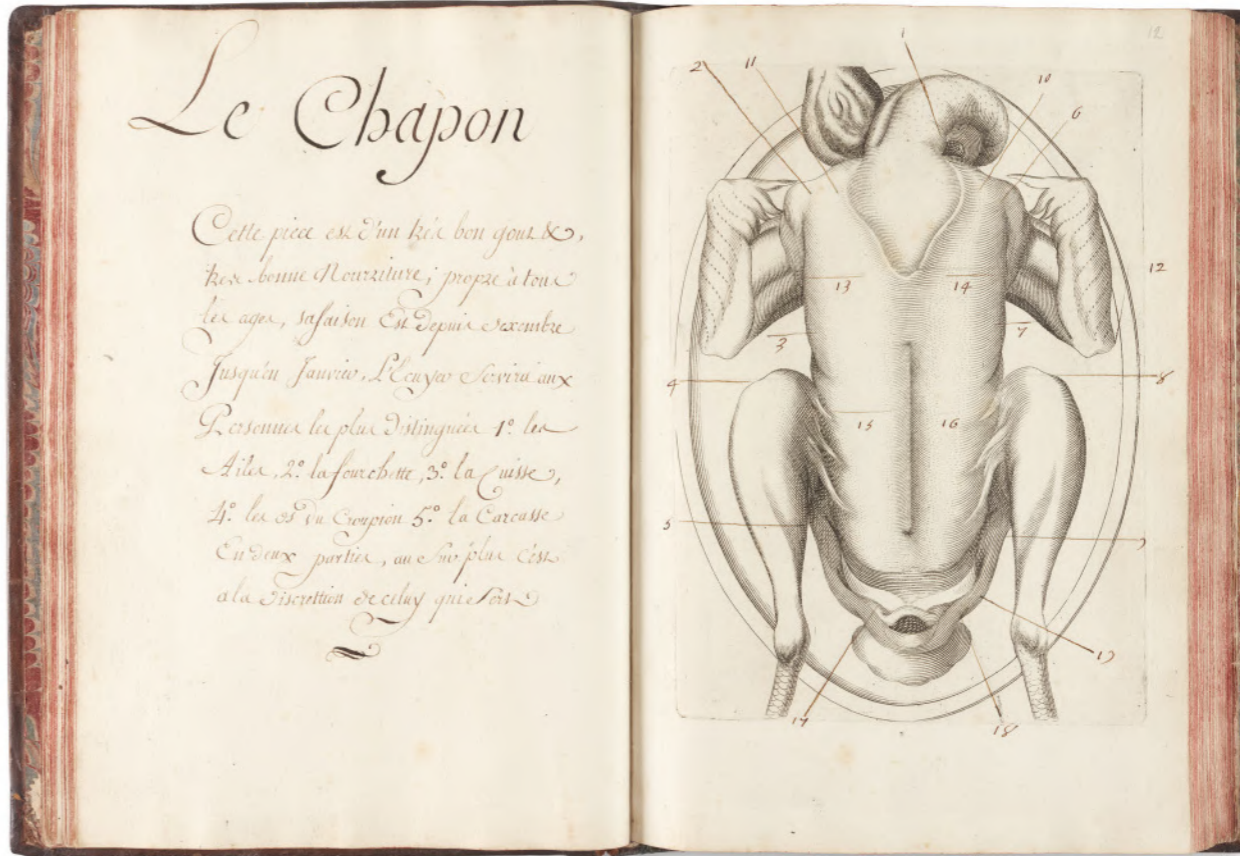 Le Chapon
Cette piece est d'un trés bon goust &,
trés bonne Nourriture; propre à tous
les ages, sa saison Est Depuis Decembre
Jusqu'en Janvier. L'Ecuyer Servira aux
Personnes les plus Distinguées 1º. les
Ailes, 2º. la fourchette, 3º. la Cuisse,
4º. les os du Croupion 5º. la Carcasse
En deux parties, au Surplus c'est
a la Discrettion de celuy qui Sert
12
1
2
11
10
6
12
13
14
3
7
4
8
15
16
5
9
19
17
18